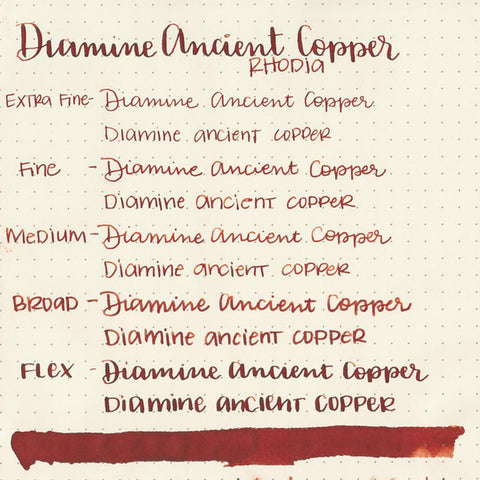 Diamine Ancient Copper
RHODIA
EXTRA FINE- Diamine Ancient Copper
Diamine ancient COPPER
Fine - Diamine Ancient Copper
Diamine ancient COPPER
MEDIUM - Diamine Ancient Copper
Diamine ancient COPPER
BROAD - Diamine Ancient Copper
Diamine ancient COPPER
FLEX - Diamine Ancient Copper
Diamine ancient COPPER